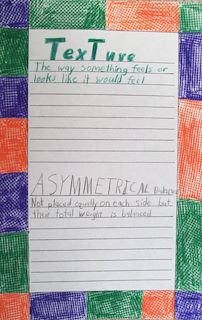 TexTure
The way something feels or
looks like it would feel
ASYMMETRICAL Balance
Not placed equally on each side but
their total weight is balanced